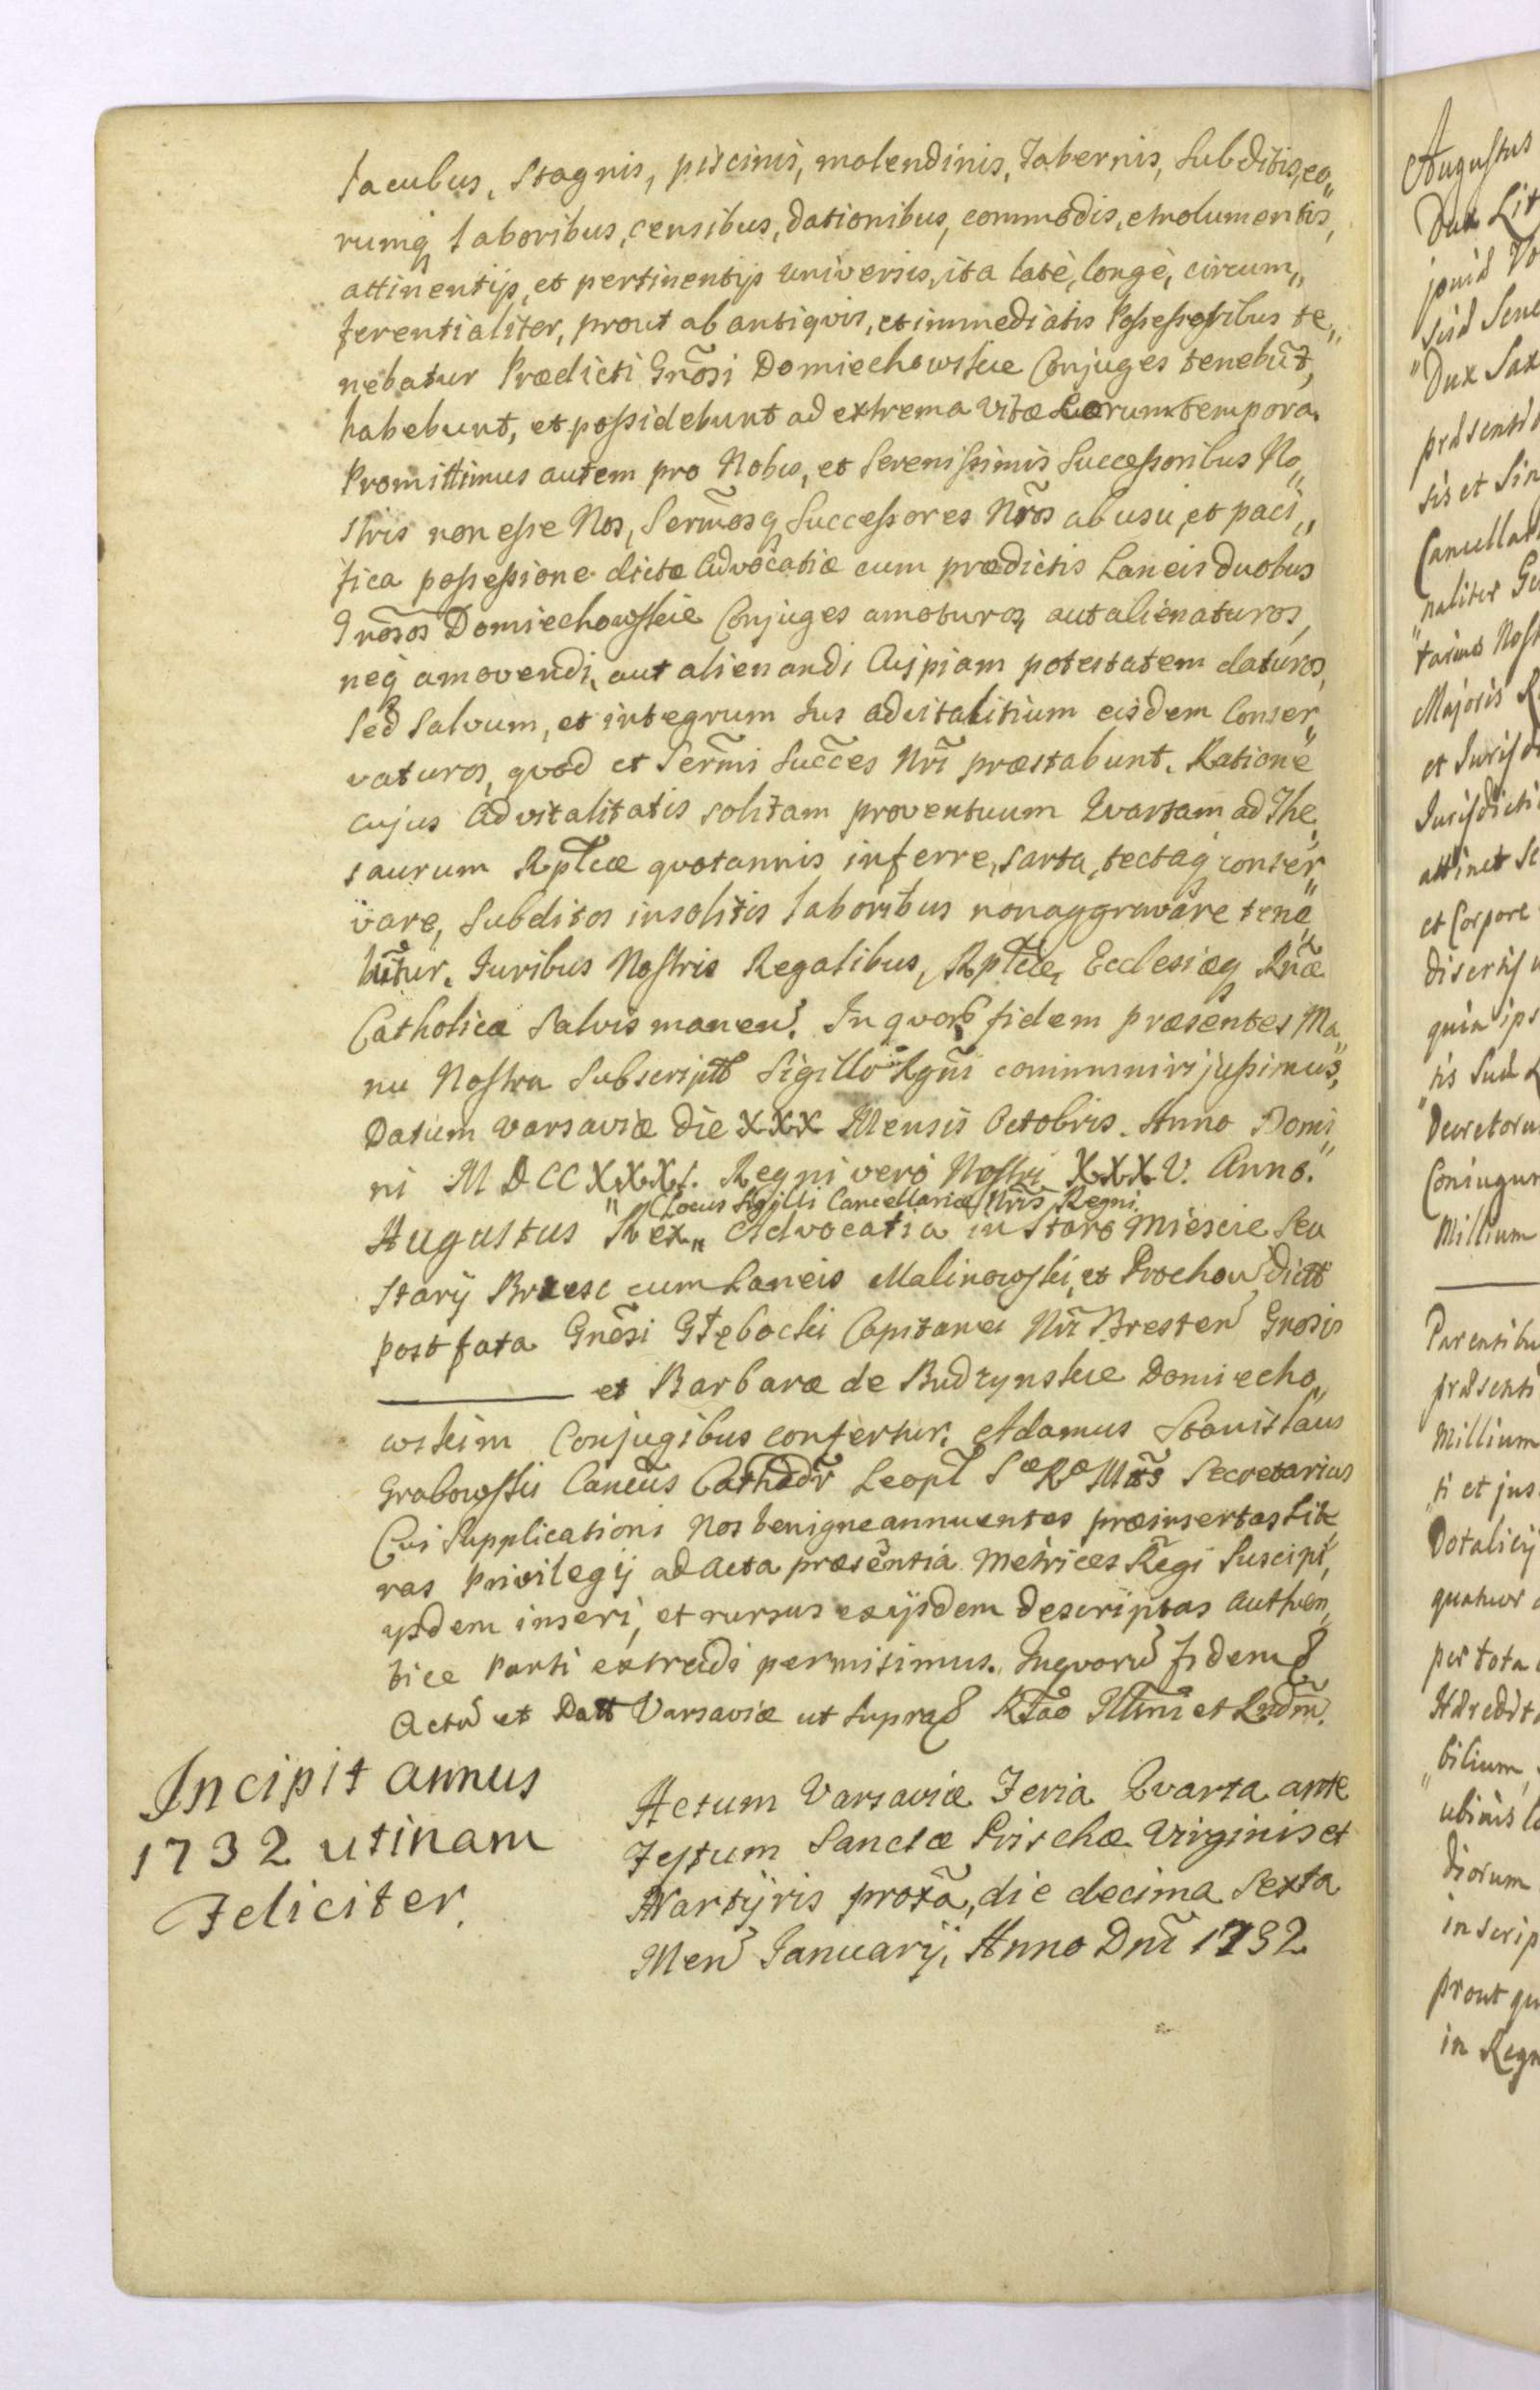 lacubus, Stagnis, piscinis, molendinis, Tabernis, Subditis, eo„
rumq laboribus, censibus, dationibus, commodis, emolumentis,
attinentijs, et pertinentijs universis, ita latè, longè, circum„
ferentialiter, prout ab antiqvis, et immediatis Possessoribus te„
nebatur Prædicti Gnõsi Domiechowskie Conjuges tenebũt,
habebunt, et possidebunt ad extrema vitæ Eorum tempora.
Promittimus autem pro Nobis, et Serenissimis Successoribus No„
stris non esse Nos, Serm̃osq Successores Nr̃os ab usu, et paci„
fica possessione dictæ Advocatiæ cum prædictis Laneis duobus
Gnõsos Domiechowskie Conjuges amoturos, aut alienaturos,
neq amovendi, aut alienandi Cuipiam potestatem daturos,
Sed Salvum, et integrum Jus advitalitium eisdem Conser„
vaturos, qvod et Serm̃i Succ̃es Nr̃i præstabunt. Ratione
cujus Advitalitatis solitam proventuum Qvartam ad The„
saurum Rptcæ qvotannis inferre, sarta, tectaq conser„
vare, Subditos insolitis laboribus non aggravare tene„
bũtur. Juribus Nostris Regalibus, Rptcæ, Ecclesiæq Rñæ
Catholicæ Salvis manen. In qvorũ fidem præsentes Ma„
nu Nostra Subscriptt Sigillo Rgñi communiri jussimus,
Datum Varsaviæ die XXX Mensis Octobris. Anno Domi„
ni MDCCXXXI. Regni verò Nostri XXXV. Anno.
Augustus Rex„ (Locus Sigilli Cancellariæ Mr̃is Regni
Advocatia in Staro Miescie Seu
Stary Brzesc cum Laneis Malinowski, et Prochow dictt
post fata Gnõsi Głębocki Capitanei Nr̃i Bresten Gnosis
——— et Barbaræ de Budzynskie Domiecho„
wskim Conjugibus confertur. Adamus Stanislaus
Grabowski Cancũs Cathedr̃ Leopl̃ Sæ Ræ Mt̃is Secretarius
Cui Supplicationi Nos benigne annuentes præinsertas Litt„
ras Privilegij ad Acta præsentia Metrices Regñi Suscipi,
ijsdem inseri, et rursus ex ijsdem descriptas authen„
tice Parti extradi permisimus. In qvorũ fidem
Actũ et Datt Varsaviæ ut supra Rl̃ao Illm̃i et Rndm̃.
Incipit annus
1732 utinam
Feliciter.
Actum Varsaviæ Feria Qvarta ante
Festum Sanctæ Prischæ Virginis et
Martyris prox̃a, die decima Sexta
Men Januarij, Anno Dni 1732
Augustus
Dux Lit
præsenti
sis et Sin
Cancellar
naliter Ge
Majoris R
et Jurisd
Jurisdicti
attinet Se
et Corpore
disertis v
quia ips
Decretoru
Coniugum
Millium
Parentibu
præsenti
Millium
ti et jus
Dotalicij
quatuor
per tota
Hæredit
bilium,
diorum
in scrip
prout qu
in Regn